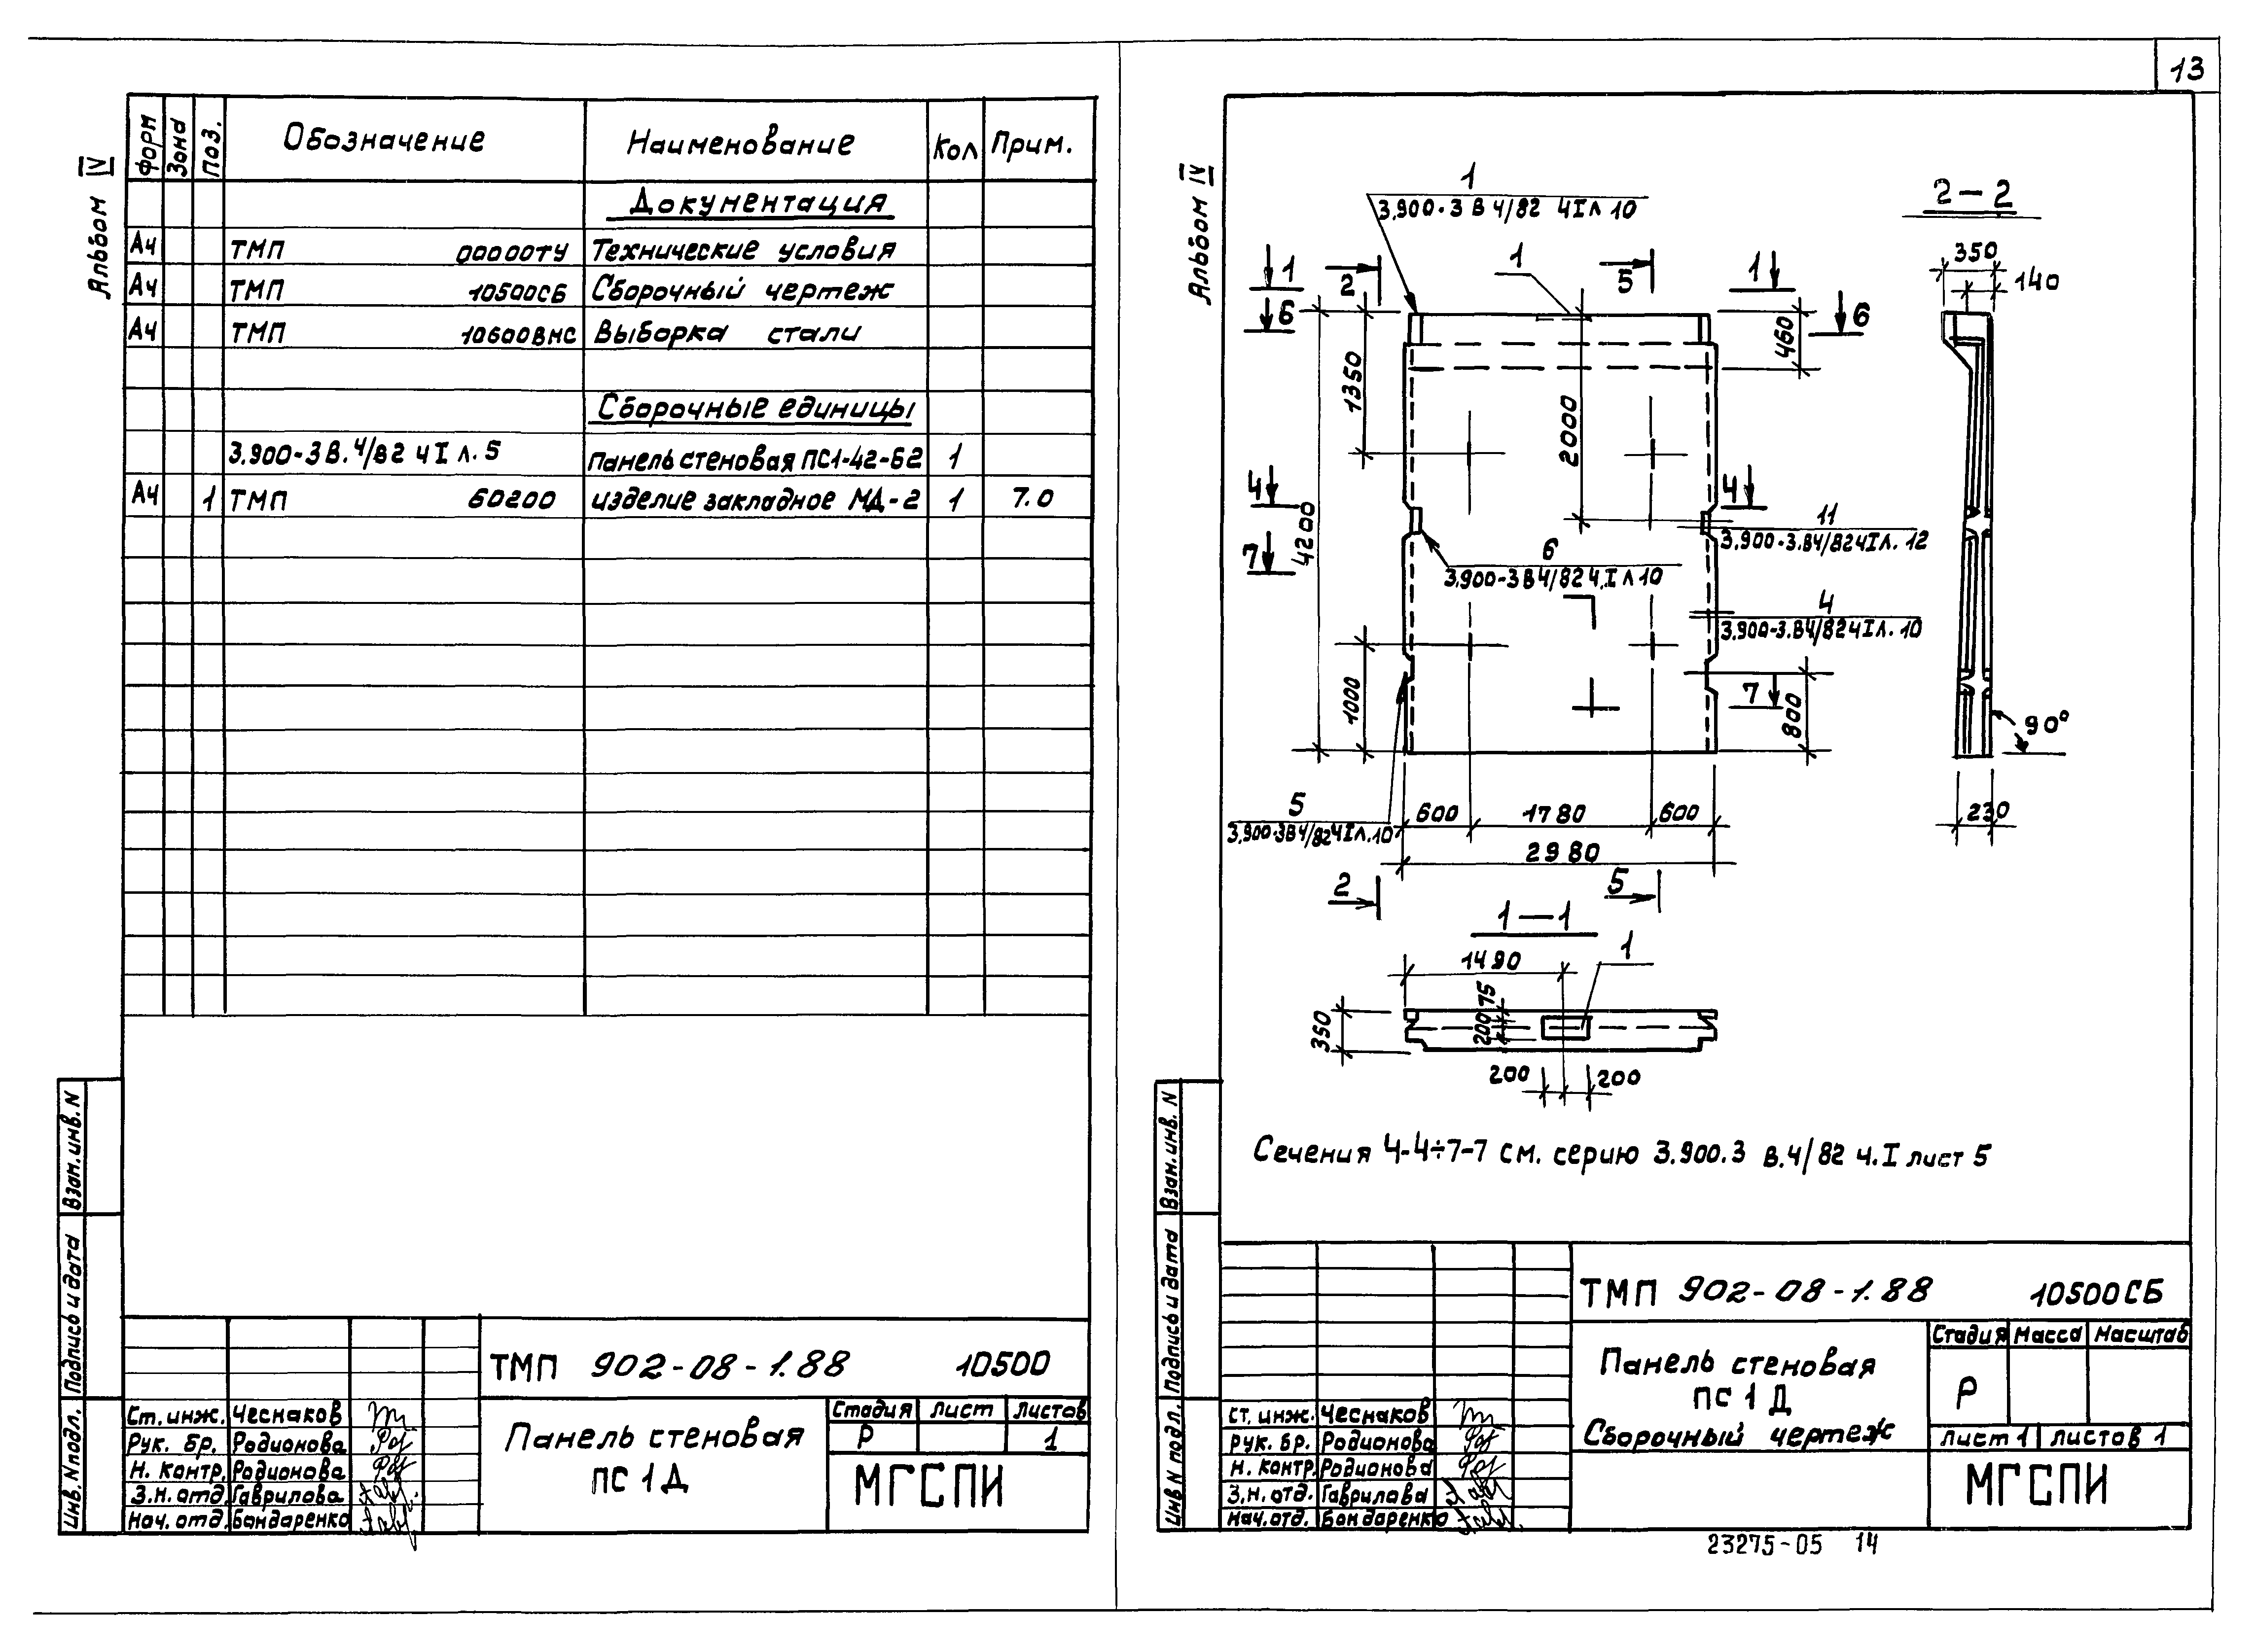 Альбом IV
форм Зона Поз. Обозначение Наименование Кол Прим.
Документация
А4 ТМП 00000ТУ Технические условия
А4 ТМП 10500СБ Сборочный чертеж
А4 ТМП 10600ВМС Выборка стали
Сборочные единицы
3.900-3 В.4/82 ч I л. 5 Панель стеновая ПС1-42-Б2 1
А4 1 ТМП 60200 изделие закладное МД-2 1 7.0
Взам.инв. N
Подпись и дата
Инв. N подл.
ТМП 902-08-1.88 10500
Ст. инж. Чеснаков
Рук. бр. Родионова
Н. контр. Родионова
З.н. отд. Гаврилова
Нач. отд. Бондаренко
Панель стеновая
ПС 1 Д
Стадия лист листов
Р 1
МГСПИ
13
Альбом IV
1
3.900-3 В 4/82 ч I л 10
2-2
350
140
1 2 1 5 1
6 6
1350
460
2000
4200
4 4
7
11
3.900-3.В4/82 ч I л. 12
6
3.900-3 В4/82 ч. I л 10
4
3.900-3.В4/82 ч I л. 10
1000
7
800
90°
5
3.900-3В4/82 ч I л. 10
600 1780 600
2980
230
2 5
1-1
1490
1
75
200
350
200 200
Сечения 4-4÷7-7 см. серию 3.900.3 В.4/82 ч. I лист 5
Взам.инв. N
Подпись и дата
Инв N подл.
ТМП 902-08-1.88 10500СБ
Ст. инж. Чеснаков
Рук. бр. Родионова
Н. контр. Родионова
З.н. отд. Гаврилова
Нач. отд. Бондаренко
Панель стеновая
ПС 1 Д
Сборочный чертеж
Стадия Масса Масштаб
Р
лист 1 листов 1
МГСПИ
23275-05 14